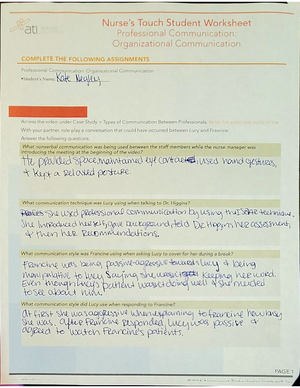 ati
Nurse's Touch Student Worksheet
Professional Communication:
Organizational Communication
COMPLETE THE FOLLOWING ASSIGNMENTS
Professional Communication: Organizational Communication
•Student's Name: Kate Negley
Access the video under Case Study > Types of Communication Between Professionals.
With your partner, role-play a conversation that could have occurred between Lucy and Francine.
Answer the following questions.
What nonverbal communication was being used between the staff members while the nurse manager
was introducing the meeting at the beginning of the video?
He provided space, maintained eye contact, used hand gestures,
& kept a relaxed posture.
What communication technique was Lucy using when talking to Dr. Higgins?
She used professional communication by using the ISBAR technique.
She introduced herself, gave background, told Dr. Higgins her assessment,
& then her recommendations.
What communication style was Francine using when asking Lucy to cover for her during a break?
Francine was being passive-aggressive towards Lucy & being
manipulative to Lucy saying she wasn't keeping her word.
Even though Lucy's patient wasn't doing well & she needed
to see about him.
What communication style did Lucy use when responding to Francine?
At first she was aggressive when explaining to Francine how busy
she was. After Francine responded, Lucy was passive &
agreed to watch Francine's patients.
PAGE 1